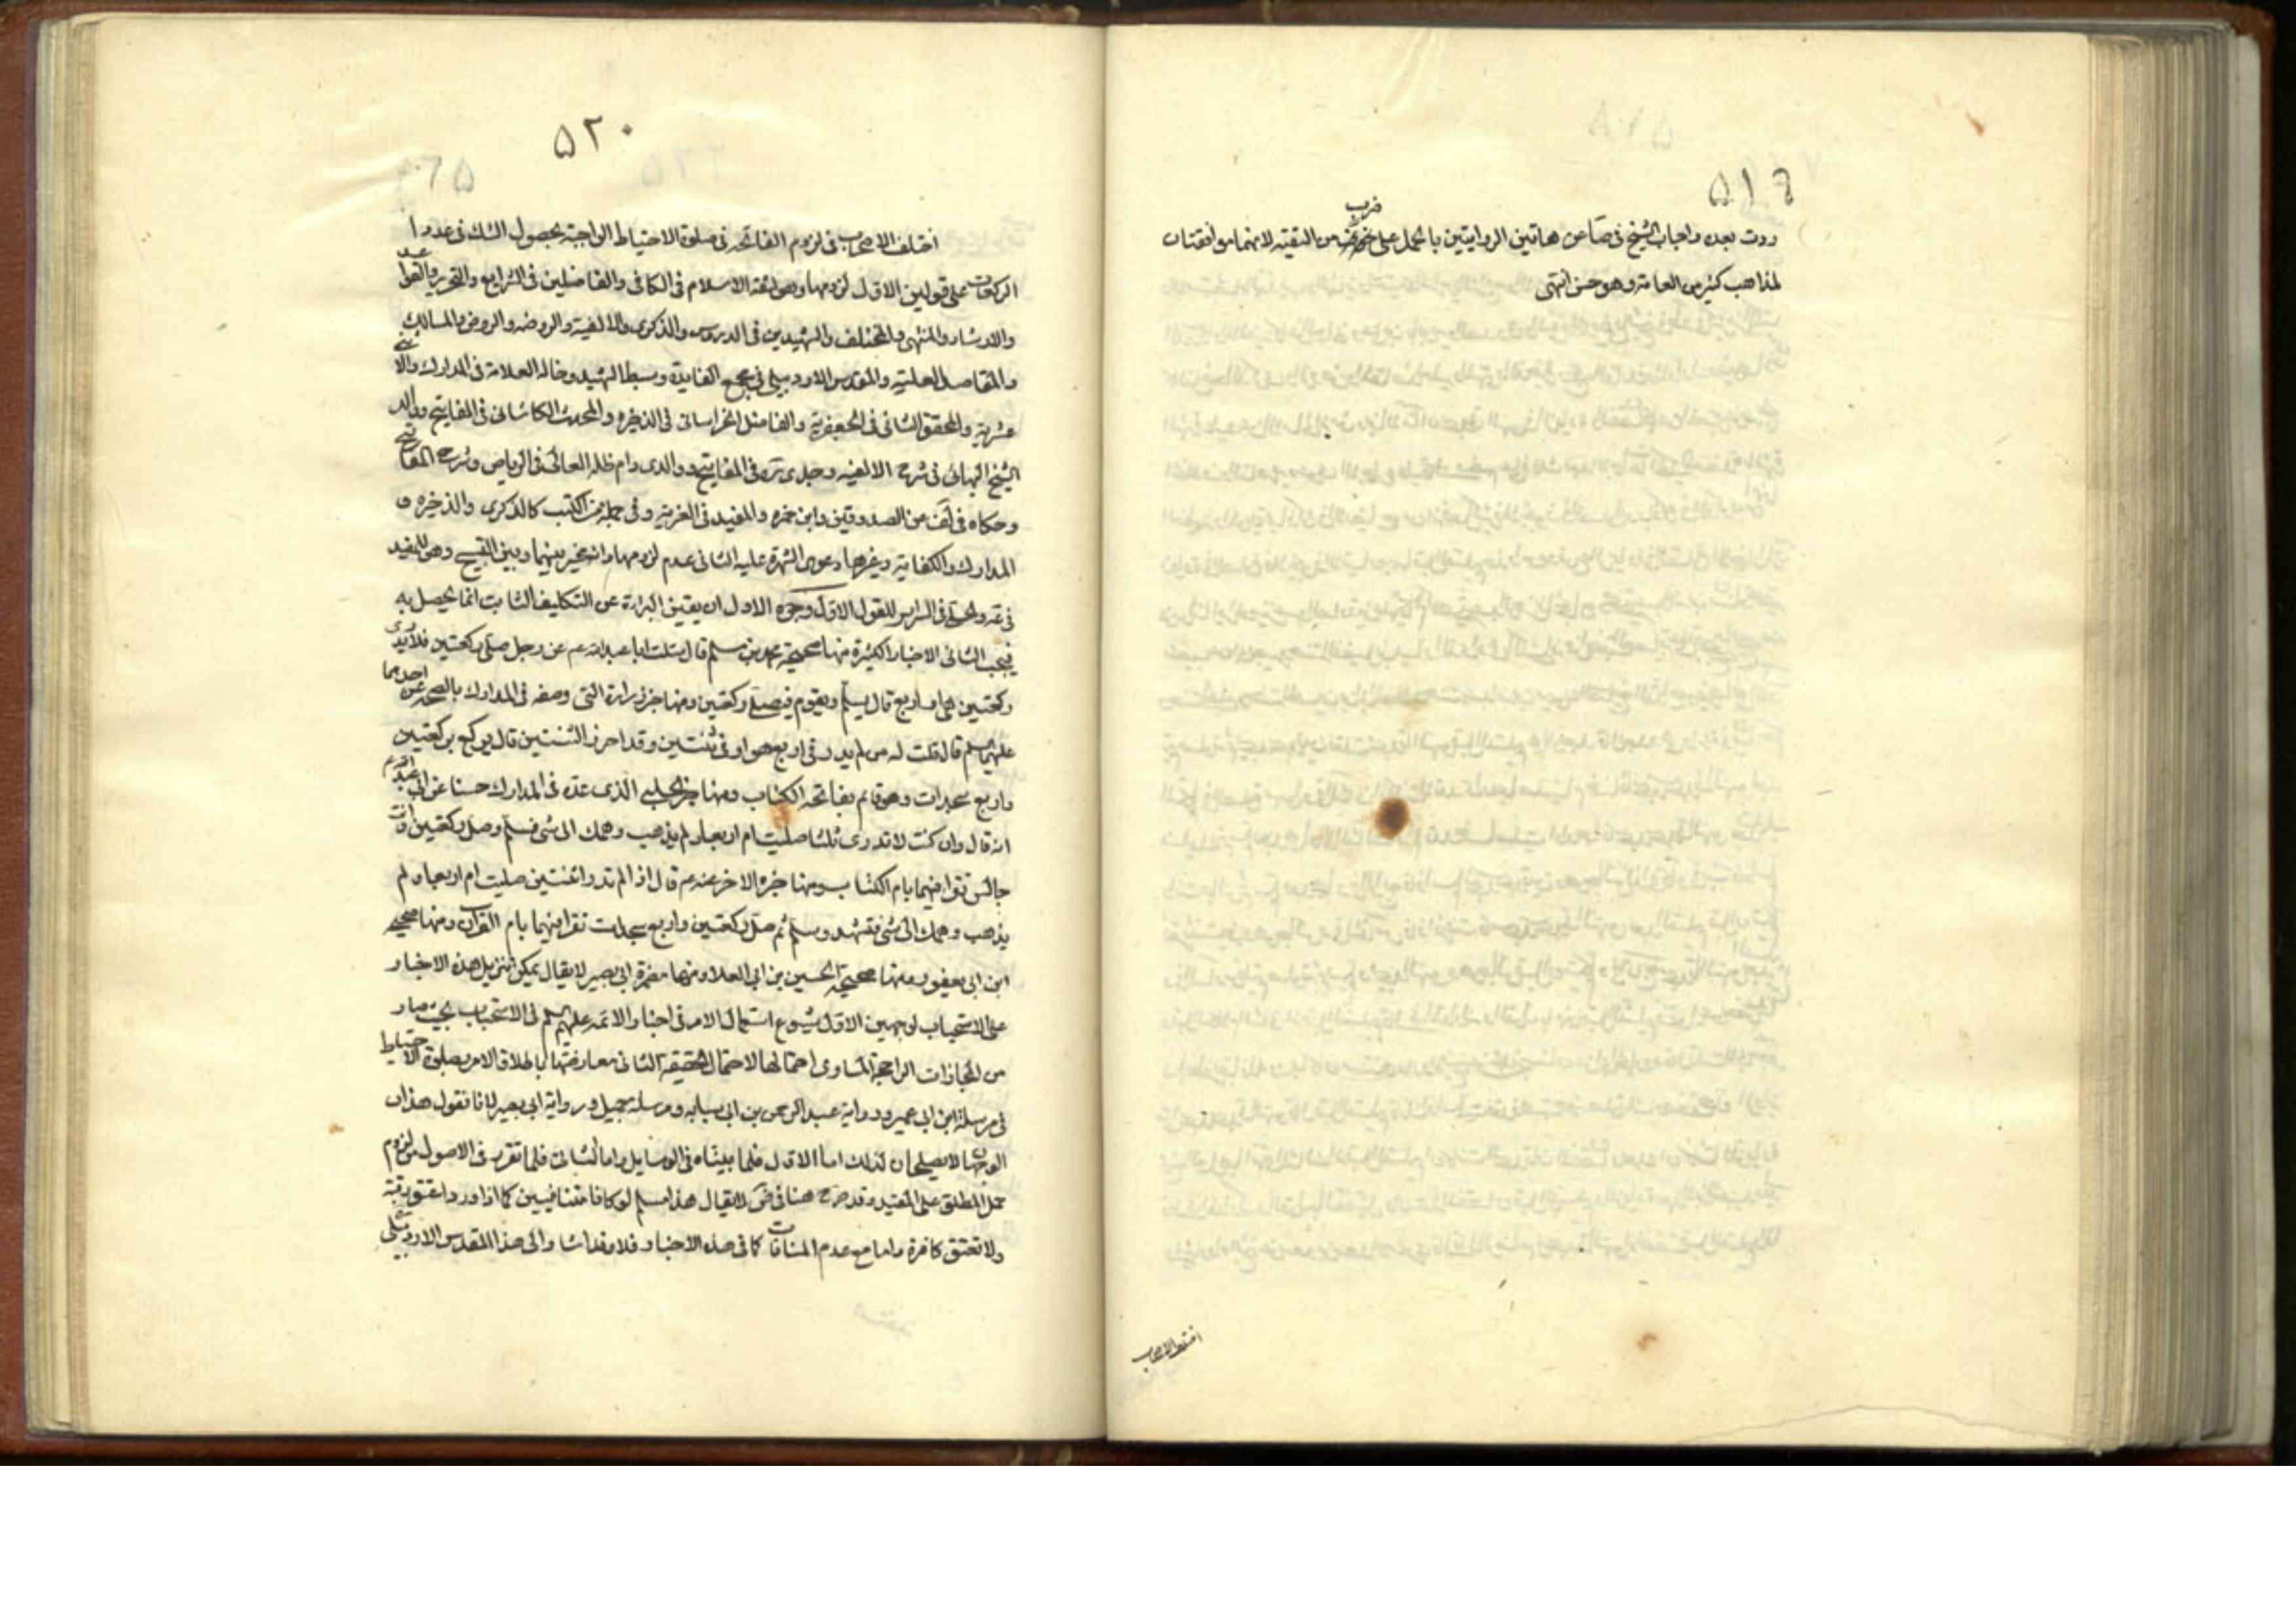 ٥١٩
ردت بعده واجاب الشيخ في صا عن هاتين الروايتين بالحمل على ضرب من التقية لانهما موافقتان
لمذاهب كثير من العامة وهو حسن انتهى
اختلف الاصحاب
٥٢٠
اختلف الاصحاب في لزوم الفاتحة في صلوة الاحتياط الواجبة بحصول الشك في عدد
الركعات على قولين الاول لزومها وهو لثقة الاسلام في الكافي والفاضلين في الشرايع والتحرير والقواعد
والارشاد والمنتهى والمختلف والشهيدين في الدروس والذكرى والالفية والروضه والروض والمسالك
والمقاصد العلية والمقدس الاردبيلي في مجمع الفايدة وسبط الشهيد وخاله العلامة في المدارك والاثنى
عشرية والمحقق الثاني في الجعفرية والفاضل الخراساني في الذخيره والمحدث الكاشاني في المفاتيح ووالد
الشيخ البهائي في شرح الالفيه وجدى ره في المفاتيح ووالدى دام ظله العالى في الرياض وشرح المفاتيح
وحكاه في لف عن الصدوقين وابن حمزه والمفيد في الغرية وفي جملة من الكتب كالذكرى والذخيره و
المدارك والكفاية وغيرها دعوى الشهرة عليه الثانى عدم لزومها وانه مخير بينهما وبين التسبيح وهو للمفيد
في عه والحلى في السراير للقول الاول وجوه الاول ان يقين البراءة عن التكليف الثابت انما يحصل به
فيجب الثانى الاخبار الكثيرة منها صحيحة محمد بن مسلم قال سئلت ابا عبد الله عم عن رجل صلى ركعتين فلا يدرى
ركعتين هى او اربع قال يسلم ويقوم فيصلى ركعتين ومنها خبر زرارة التى وصفه في المدارك بالصحه عن احدهما
عليهما سلم قال قلت له من لم يدر في اربع هو او في ثنتين وقد احرز الثنتين قال يركع بركعتين
واربع سجدات وهو قائم بفاتحه الكتاب ومنها خبر الحلبى الذى عده في المدارك حسنا عن ابى عبد الله عم
انه قال وان كنت لا تدرى ثلثا صليت ام اربعا ولم يذهب وهمك الى شى فسلم وصل ركعتين وانت
جالس تقرا فيهما بام الكتاب ومنها خبره الاخر عنه عم قال اذا لم تدر اثنتين صليت ام اربعا ولم
يذهب وهمك الى شى فتشهد وسلم ثم صل ركعتين واربع سجدات تقرا فيهما بام القران ومنها صحيحه
ابن ابى يعفور ومنها صحيحة الحسين بن ابى العلا ومنها مضمرة ابى بصير لا يقال يمكن تنزيل هذه الاخبار
على الاستحباب لوجهين الاول شيوع استعمال الامر في اخبار الائمه عليهم سلم في الاستحباب بحيث صار
من المجازات الراجحة المساوى احتمالها لاحتمال الحقيقة الثانى معارضتها باطلاق الامر بصلوة الاحتياط
في مرسلة ابن ابى عمير ورواية عبد الرحمن بن ابى سيابه ومرسلة جميل ورواية ابى بصير لانا نقول هذان
الوجهان لا يصلحان لذلك اما الاول فلما بيناه في الوسايل واما الثانى فلما تقرر في الاصول من لزوم
حمل المطلق على المقيد وقد صرح هنا في ض لا يقال هذا مسلم لو كانا متنافيين كما اذا ورد اعتق رقبة
ولا تعتق كافرة واما مع عدم المنافات كما في هذه الاخبار فلا وفاشا والى هذا المقدس الاردبيلى